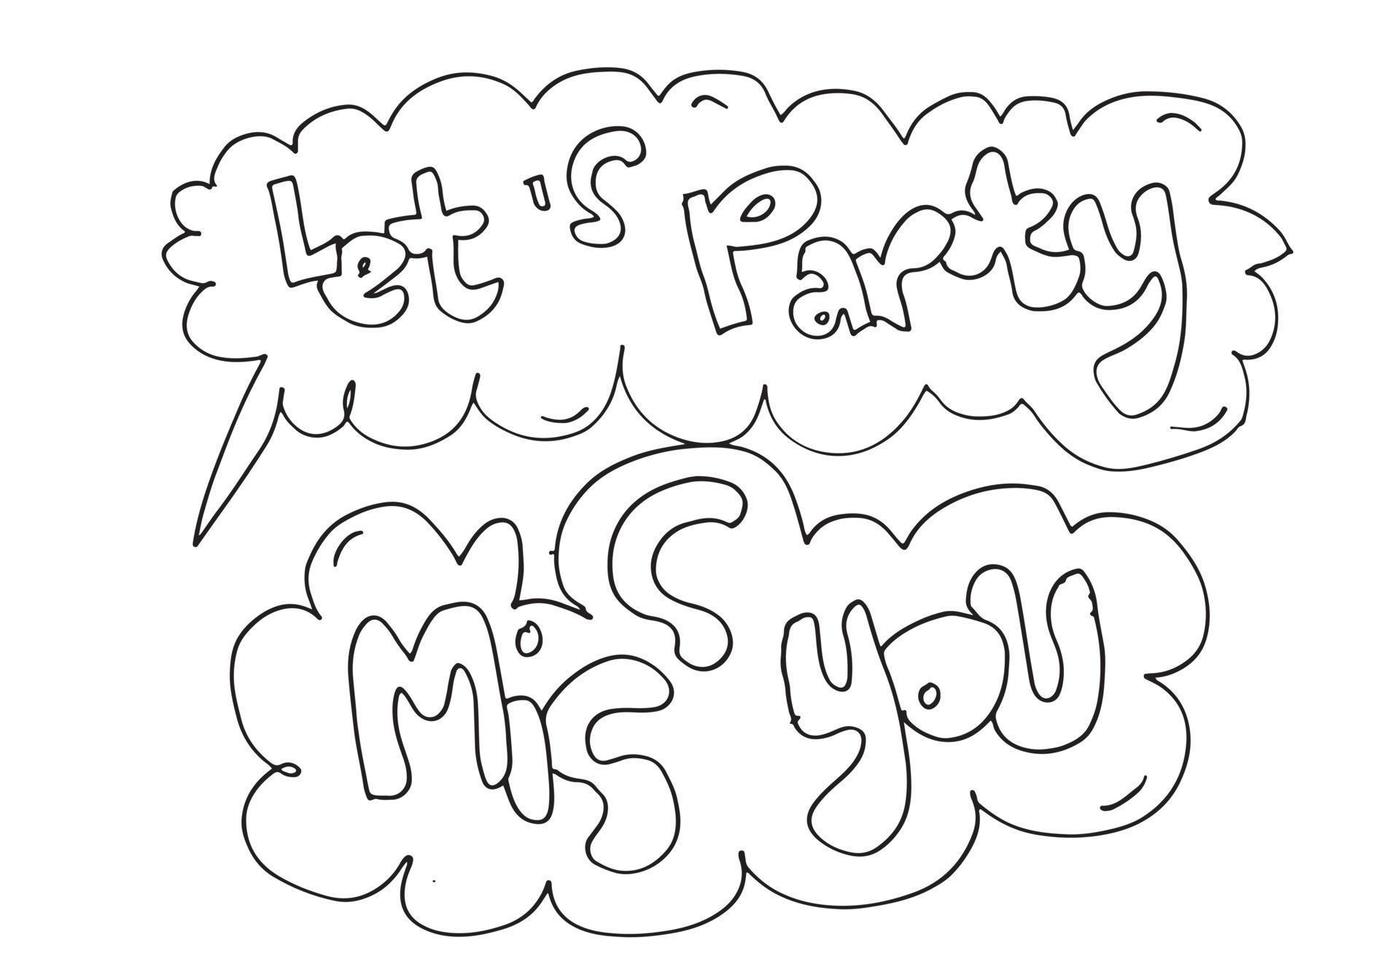 Let's Party
Miss you